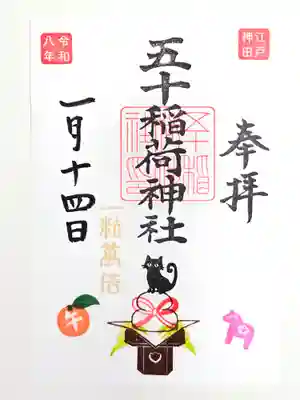 江戸
神田
奉拝
五十稲荷神社
一粒萬倍
令和
八年
一月十四日
午